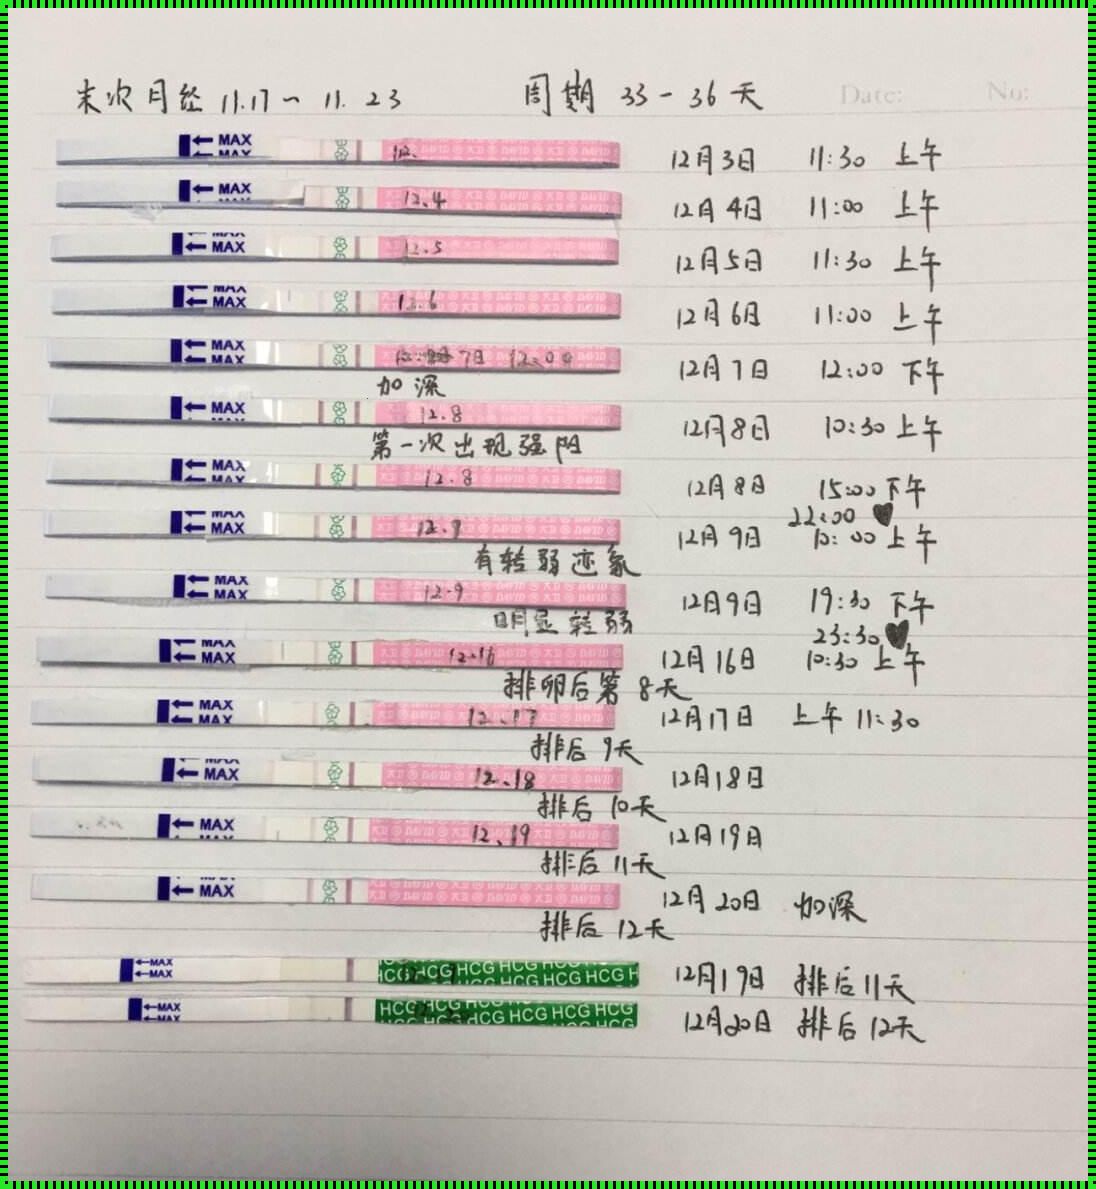 末次月经 11.17～11.23 周期 33-36天
Date: No:
MAX MAX 12. DAVID 12月3日 11:30 上午
MAX 12.4 DAVID 12月4日 11:00 上午
MAX MAX 12.5 DAVID 12月5日 11:30 上午
MAX MAX 12.6 DAVID 12月6日 11:00 上午
MAX MAX 7日 12:00 12月7日 12:00 下午
加深
MAX 12.8 DAVID 12月8日 10:30 上午
第一次出现强阳
MAX MAX 12.8 DAVID 12月8日 15:00 下午
22:00 ♥
MAX MAX 12.9 DAVID 12月9日 10:00 上午
有转弱迹象
MAX MAX 12.9 DAVID 12月9日 19:30 下午
明显转弱 23:30 ♥
MAX MAX 12.16 DAVID 12月16日 10:30 上午
排卵后第8天
MAX MAX 12.17 DAVID 12月17日 上午 11:30
排后9天
MAX MAX 12.18 DAVID 12月18日
排后10天
MAX 12.19 大卫 DAVID 12月19日
排后11天
MAX 大卫 DAVID 12月20日 加深
排后12天
MAX MAX HCG HCG HCG HCG HCG 12月19日 排后11天
MAX MAX HCG HCG HCG HCG HCG 12月20日 排后12天